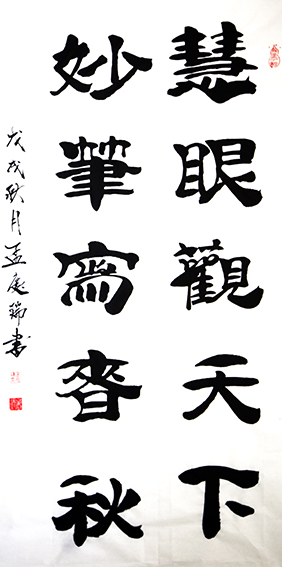 慧眼觀天下
妙筆寫春秋
戊戌秋月孟瑞書